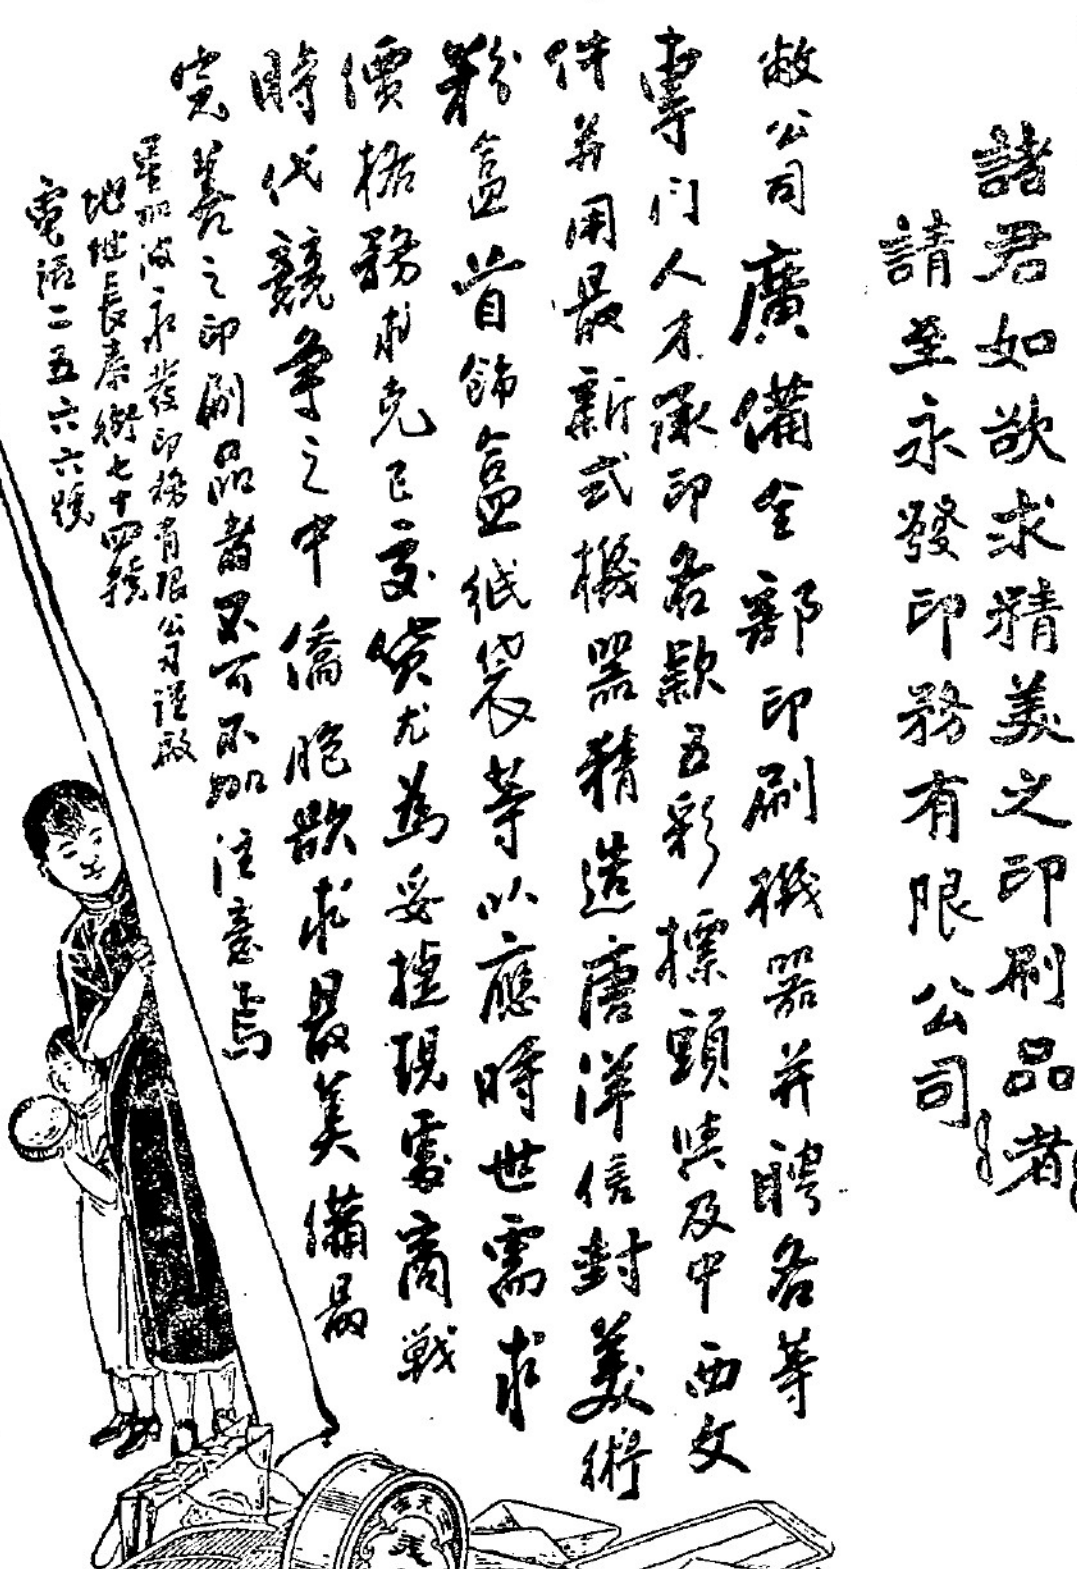 諸君如欲求精美之印刷品者
請至永發印務有限公司
敝公司廣備全部印刷機器并聘各等
專門人才承印各款五彩標頭與及中西文
件并用最新式機器精造唐洋信封美術
粉盒首飾盒紙袋等以應時世需求
價格務求克己交貨尤為妥捷現處商戰
時代競争之中僑胞欲求最美備最
完善之印刷品者不可不加注意焉
星加波永發印務有限公司謹啟
地址長泰街七十四號
電話二五六六號